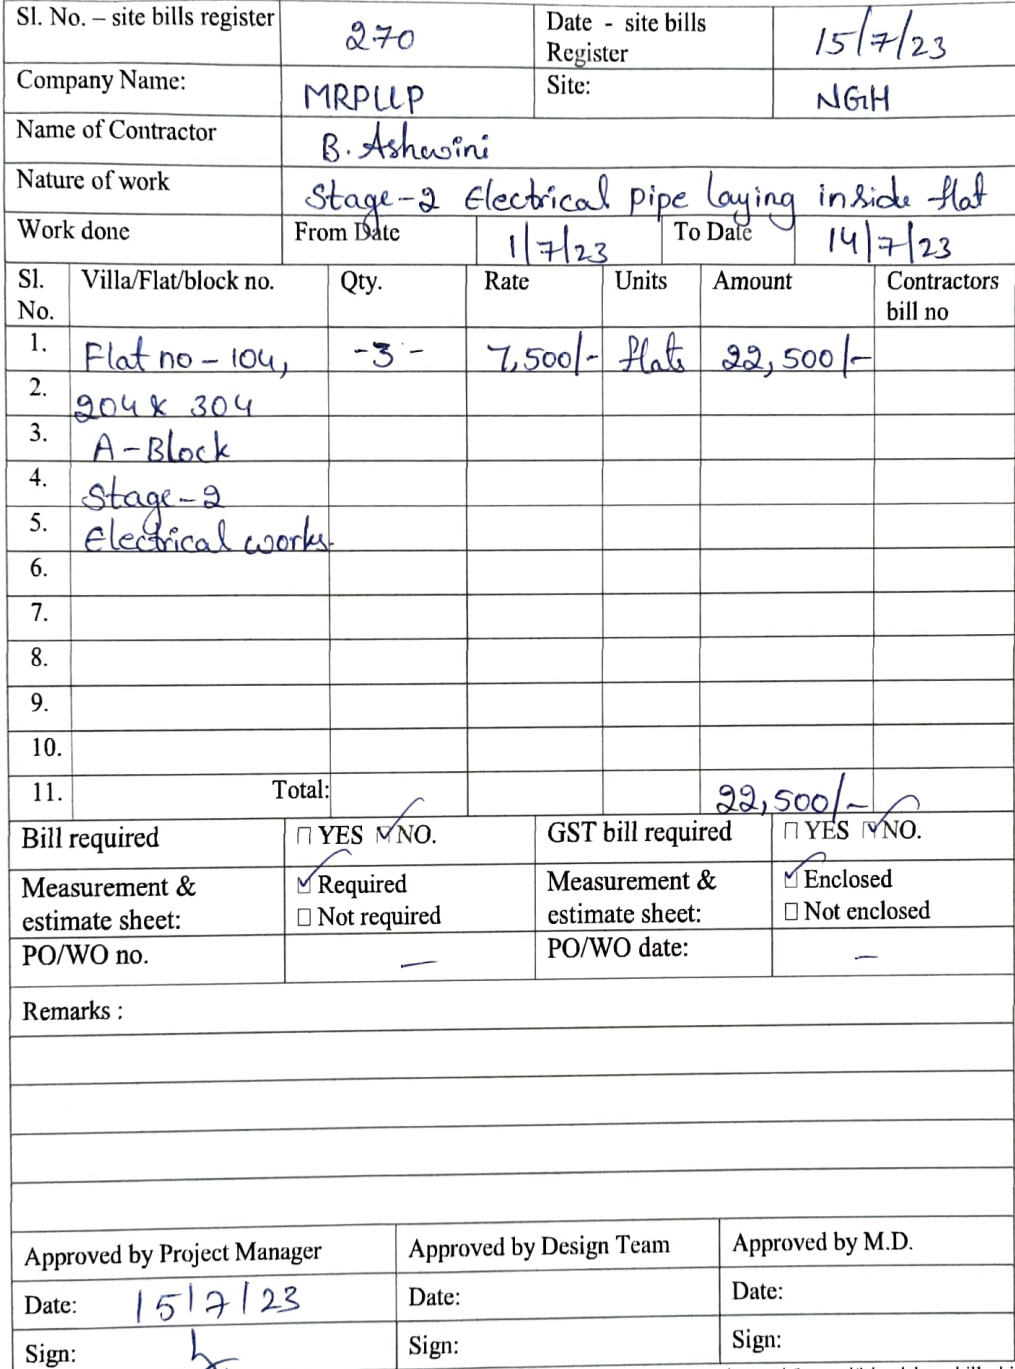 Sl. No. – site bills register 270 Date - site bills Register 15/7/23
Company Name: MRPLLP Site: NGH
Name of Contractor B. Ashwini
Nature of work Stage-2 Electrical pipe laying inside flat
Work done From Date 1/7/23 To Date 14/7/23
Sl. No. Villa/Flat/block no. Qty. Rate Units Amount Contractors bill no
1. Flat no - 104, -3- 7,500/- flats 22,500/-
2. 204 & 304
3. A-Block
4. Stage-2
5. Electrical works.
6.
7.
8.
9.
10.
11. Total: 22,500/-
Bill required □ YES ☑ NO. GST bill required □ YES ☑ NO.
Measurement & estimate sheet: ☑ Required □ Not required Measurement & estimate sheet: ☑ Enclosed □ Not enclosed
PO/WO no. — PO/WO date: —
Remarks :
Approved by Project Manager Approved by Design Team Approved by M.D.
Date: 15/7/23 Date: Date:
Sign: Sign: Sign: